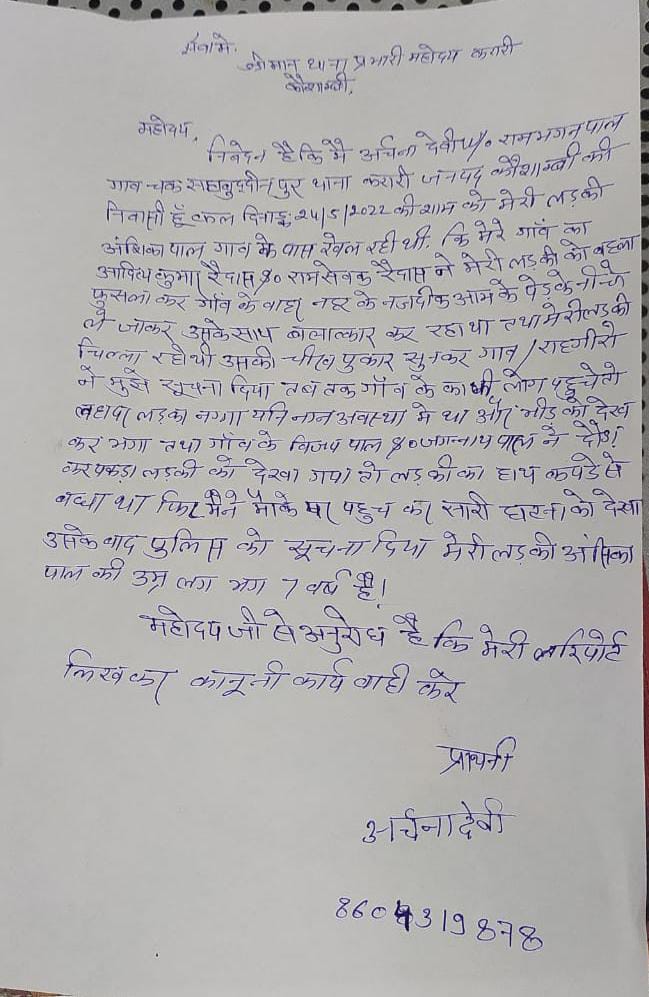 सेवा मे.
श्रीमान थाना प्रभारी महोदय करारी
कौशाम्बी,
महोदय,
निवेदन है कि मै अर्चना देवी w/o रामभगन पाल
गाव चक सहाबुद्दीनपुर थाना करारी जनपद कौशाम्बी की
निवासी हूँ कल दिनाङ्क: 24/5/2022 की शाम को मेरी लड़की
अंशिका पाल गाव के पास खेल रही थी. कि मेरे गाँव का
कुमार रैदास S/o रामसेवक रैदास ने मेरी लड़की को बहला
फुसला कर गाँव के वाहर नहर के नजदीक आम के पेड़ के नीचे
ले जाकर उसके साथ बलात्कार कर रहा था तथा मेरी लड़की
चिल्ला रही थी उसकी चीख पुकार सुनकर गाव / राहगीरो
ने मुझे सूचना दिया तब तक गाँव के काफी लोग पहुचे तो
वहा पर लड़का नग्गा यानि नग्न अवस्था मे था और भीड़ को देख
कर भगा तथा गाँव के विजय पाल S/o जगन्नाथ पाल ने दौड़ा
कर पकड़ा लड़की को देखा गया तो लड़की का हाथ कपडे से
बधा था फिर मैने मौके पर पहुच कर सारी घटना को देखा
उसके वाद पुलिस को सूचना दिया मेरी लड़की अंसिका
पाल की उम्र लग भग 7 वर्ष है!
महोदय जी से अनुरोध है कि मेरी रिपोर्ट
लिखकर कानूनी कार्य वाही करे
प्रार्थनी
अर्चना देवी
8604319878